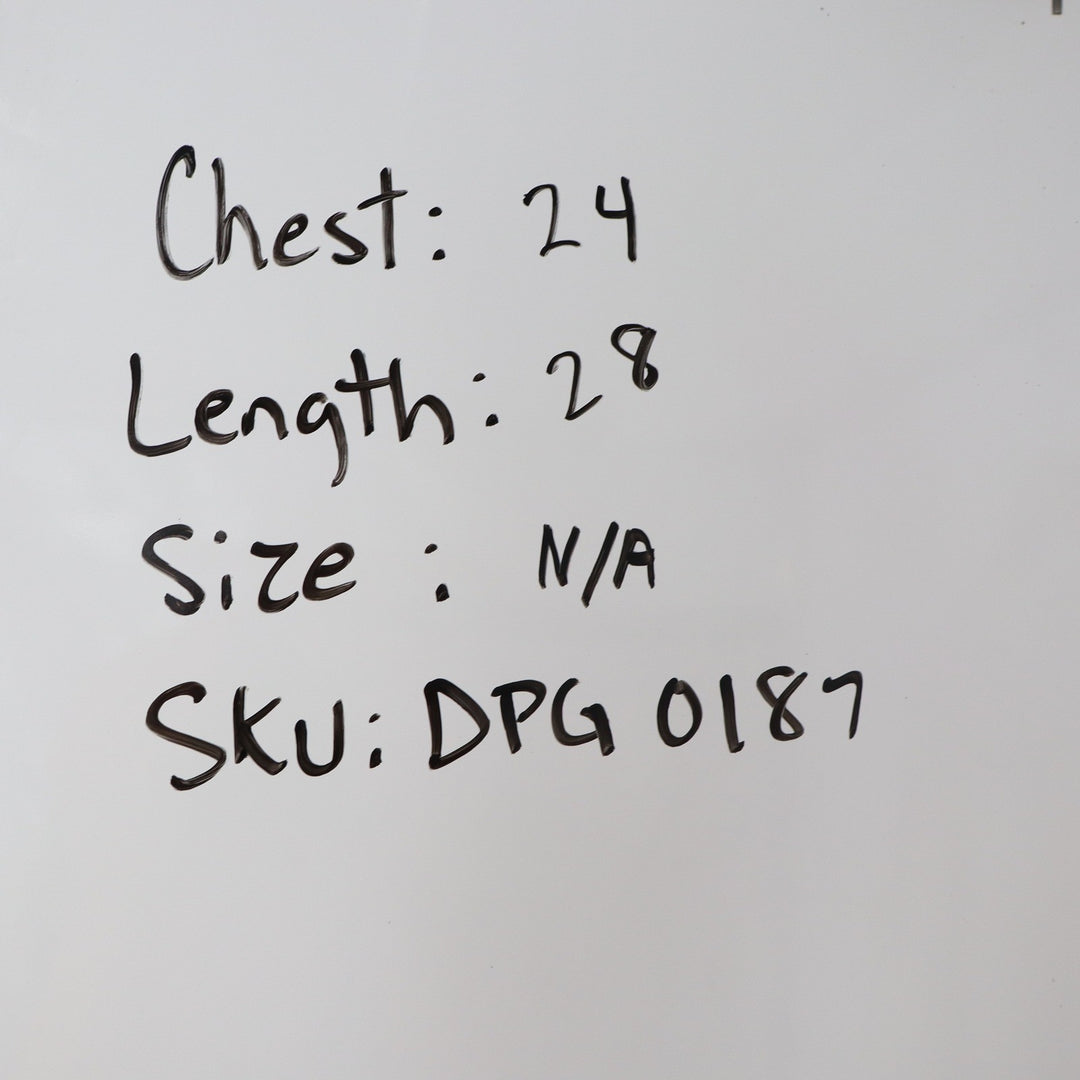 Chest: 24
Length: 28
Size : N/A
SKU: DPG 0187